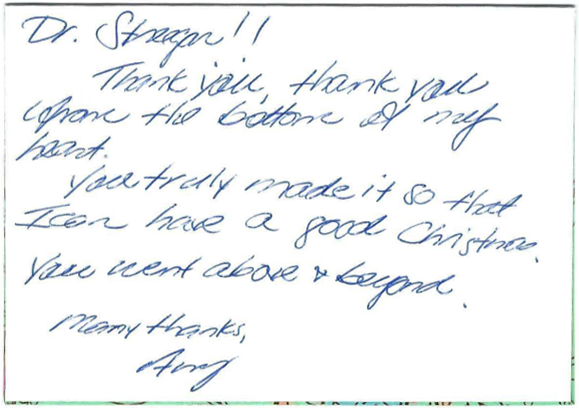 Dr. Streger!!
Thank you, thank you
from the bottom of my
heart.
You truly made it so that
I can have a good Christmas.
You went above & beyond.
Many thanks,
Amy